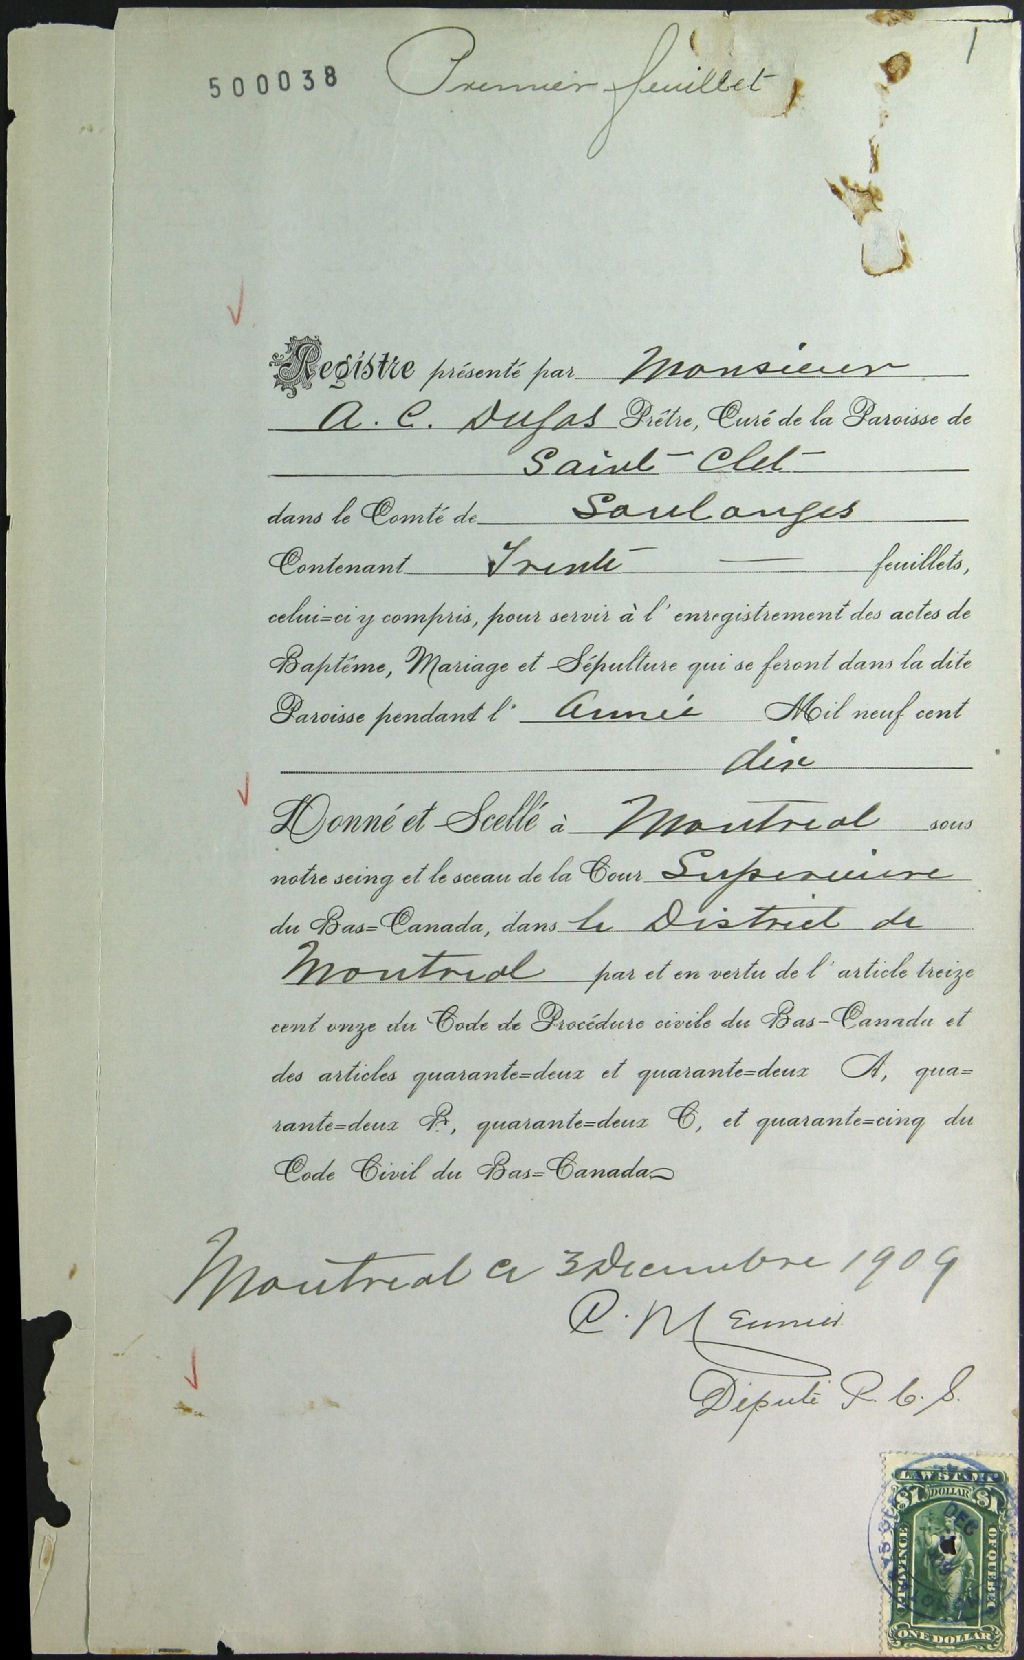 500038
Premier feuillet
1
Registre présenté par Monsieur
A. C. Dugas Prêtre, Curé de la Paroisse de
Saint-Clet
dans le Comté de Soulanges
Contenant Trente feuillets,
celui=ci y compris, pour servir à l'enregistrement des actes de
Baptême, Mariage et Sépulture qui se feront dans la dite
Paroisse pendant l'Année Mil neuf cent
dix
Donné et Scellé à Montreal sous
notre seing et le sceau de la Cour Superieure
du Bas=Canada, dans le District de
Montreal par et en vertu de l'article treize
cent onze du Code de Procédure civile du Bas-Canada et
des articles quarante=deux et quarante=deux A, qua=
rante=deux B, quarante=deux C, et quarante=cinq du
Code Civil du Bas=Canada
Montreal ce 3 Decembre 1909
Meunier
Député P. C. S.
LAW STAMP
$1 DOLLAR $1
DEC
PROVINCE
OF QUEBEC
ONE DOLLAR